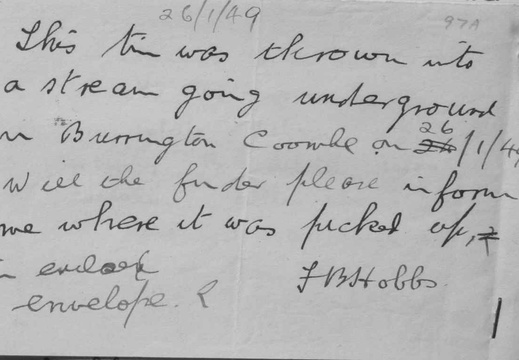 26/1/49
97A
This tin was thrown into
a stream going underground
in Burrington Coombe on 26/1/49
Will the finder please inform
me where it was picked up,
in
envelope. &
F B Hobbs